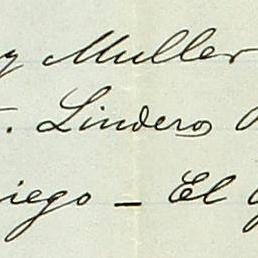 y Muller
. Lindero
iego - El